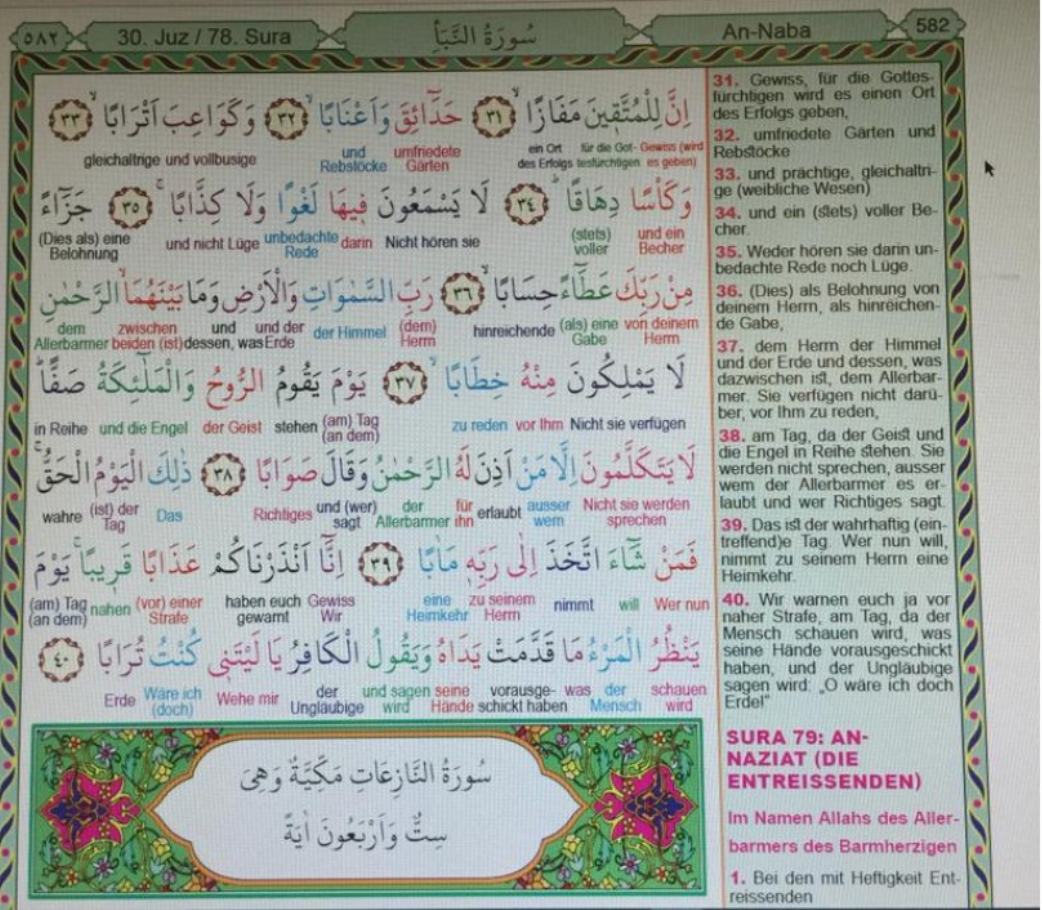 ٥٨٢ 30. Juz / 78. Sura سُورَةُ النَّبَأِ An-Naba 582
إِنَّ لِلْمُتَّقِينَ مَفَازًا ﴿٣١﴾ حَدَآئِقَ وَاَعْنَابًا ﴿٣٢﴾ وَكَوَاعِبَ اَتْرَابًا ﴿٣٣﴾
gleichaltrige und vollbusige und umfriedete ein Ort für die Got- Gewiss (wird
Rebstöcke Gärten des Erfolgs tesfürchtigen es geben)
وَكَأْسًا دِهَاقًا ﴿٣٤﴾ لَا يَسْمَعُونَ فِيهَا لَغْوًا وَلَا كِذَّابًا ﴿٣٥﴾ جَزَآءً
(Dies als) eine und nicht Lüge unbedachte darin Nicht hören sie (stets) und ein
Belohnung Rede voller Becher
مِنْ رَبِّكَ عَطَآءً حِسَابًا ﴿٣٦﴾ رَبِّ السَّمٰوَاتِ وَالْاَرْضِ وَمَا بَيْنَهُمَا الرَّحْمٰنِ
dem zwischen und und der der Himmel (dem) hinreichende (als) eine von deinem
Allerbarmer beiden (ist) dessen, was Erde Herrn Gabe Herrn
لَا يَمْلِكُونَ مِنْهُ خِطَابًا ﴿٣٧﴾ يَوْمَ يَقُومُ الرُّوحُ وَالْمَلٰٓئِكَةُ صَفًّا
in Reihe und die Engel der Geist stehen (am) Tag zu reden vor Ihm Nicht sie verfügen
(an dem)
لَا يَتَكَلَّمُونَ اِلَّا مَنْ اَذِنَ لَهُ الرَّحْمٰنُ وَقَالَ صَوَابًا ﴿٣٨﴾ ذٰلِكَ الْيَوْمُ الْحَقُّ
wahre (ist) der Das Richtiges und (wer) der für erlaubt ausser Nicht sie werden
Tag sagt Allerbarmer ihn wem sprechen
فَمَنْ شَٓاءَ اتَّخَذَ اِلٰى رَبِّهِ مَاٰبًا ﴿٣٩﴾ اِنَّٓا اَنْذَرْنَاكُمْ عَذَابًا قَرِيبًا يَوْمَ
(am) Tag nahen (vor) einer haben euch Gewiss eine zu seinem nimmt will Wer nun
(an dem) Strafe gewarnt Wir Heimkehr Herrn
يَنْظُرُ الْمَرْءُ مَا قَدَّمَتْ يَدَاهُ وَيَقُولُ الْكَافِرُ يَا لَيْتَنِي كُنْتُ تُرَابًا ﴿٤٠﴾
Erde Wäre ich Wehe mir der und sagen seine vorausge- was der schauen
(doch) Ungläubige wird Hände schickt haben Mensch wird
سُورَةُ النَّازِعَاتِ مَكِّيَّةٌ وَهِىَ
سِتٌّ وَاَرْبَعُونَ اٰيَةً
31. Gewiss, für die Gottes-
fürchtigen wird es einen Ort
des Erfolgs geben,
32. umfriedete Gärten und
Rebstöcke
33. und prächtige, gleichaltri-
ge (weibliche Wesen)
34. und ein (stets) voller Be-
cher.
35. Weder hören sie darin un-
bedachte Rede noch Lüge.
36. (Dies) als Belohnung von
deinem Herrn, als hinreichen-
de Gabe,
37. dem Herrn der Himmel
und der Erde und dessen, was
dazwischen ist, dem Allerbar-
mer. Sie verfügen nicht darü-
ber, vor Ihm zu reden,
38. am Tag, da der Geist und
die Engel in Reihe stehen. Sie
werden nicht sprechen, ausser
wem der Allerbarmer es er-
laubt und wer Richtiges sagt.
39. Das ist der wahrhaftig (ein-
treffend)e Tag. Wer nun will,
nimmt zu seinem Herrn eine
Heimkehr.
40. Wir warnen euch ja vor
naher Strafe, am Tag, da der
Mensch schauen wird, was
seine Hände vorausgeschickt
haben, und der Ungläubige
sagen wird: „O wäre ich doch
Erde!"
SURA 79: AN-
NAZIAT (DIE
ENTREISSENDEN)
Im Namen Allahs des Aller-
barmers des Barmherzigen
1. Bei den mit Heftigkeit Ent-
reissenden